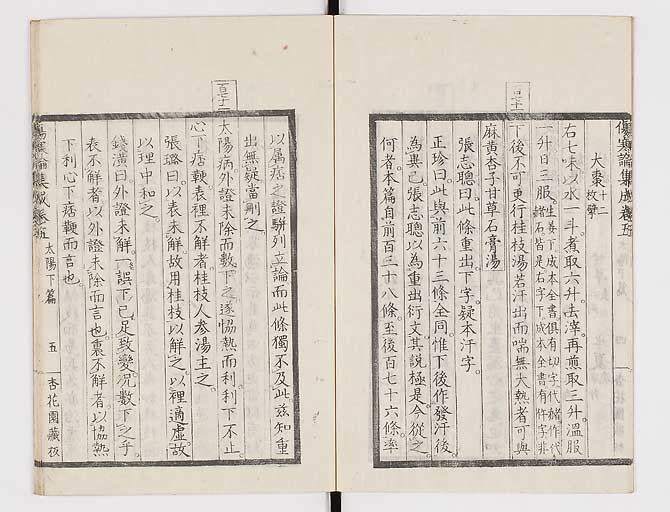 傷寒論集成卷五
大棗十二枚擘
右七味以水一斗煮取六升去滓再煎取三升溫服
一升日三服
下後不可更行桂枝湯若汗出而喘無大熱者可與
麻黃杏子甘草石膏湯
張志聰曰此條重出下字疑本汗字
正珍曰此與前六十三條全同惟下後作發汗後
為異已張志聰以為重出衍文其說極是今從之
何者本篇自前百三十八條至後百七十六條率
以屬痞之證駢列立論而此條獨不及此茲知重
出無疑當刪之
太陽病外證未除而數下之遂恊熱而利利下不止
心下痞鞕表裡不解者桂枝人參湯主之
張璐曰以表未解故用桂枝以解之以裡適虛故
以理中和之
錢潢曰外證未解一誤下已足致變況數下之乎
表不解者以外證未除而言也裏不解者以恊熱
下利心下痞鞕而言也
傷寒論集成卷五 太陽下篇 五 杏花園藏板